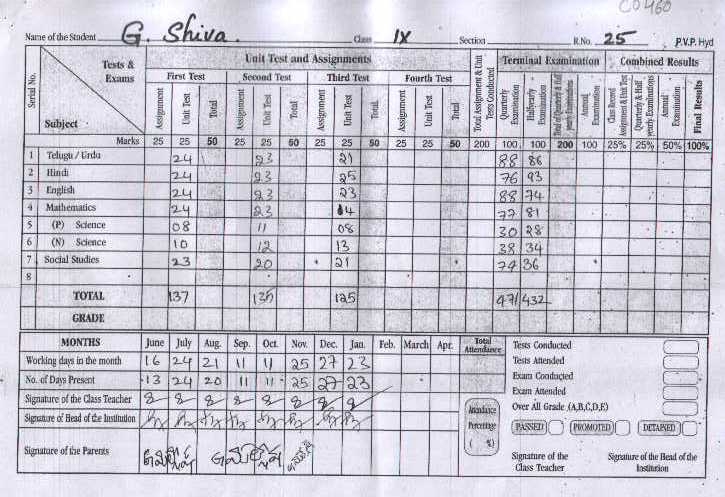 C0460
Name of the Student G. Shiva. Class IX Section R.No. 25 P.V.P. Hyd
Serial No. Tests & Exams Subject Unit Test and Assignments Total Assignment & Unit Tests Conducted Terminal Examination Combined Results
First Test Second Test Third Test Fourth Test
Assignment Unit Test Total Assignment Unit Test Total Assignment Unit Test Total Assignment Unit Test Total Quarterly Examination Halfyearly Examination Total of Quarterly & Half yearly Examinations Annual Examination Class Record Assignment & Unit Test Quarterly & Half yearly Examinations Annual Examination Final Results
Marks 25 25 50 25 25 50 25 25 50 25 25 50 200 100 100 200 100 25% 25% 50% 100%
1 Telugu / Urdu 24 23 21 88 86
2 Hindi 24 23 25 76 93
3 English 24 23 23 88 74
4 Mathematics 24 23 14 77 81
5 (P) Science 08 11 08 30 28
6 (N) Science 10 12 13 38 34
7 Social Studies 23 20 21 74 36
8
TOTAL 137 135 125 471 432
GRADE
MONTHS June July Aug. Sep. Oct. Nov. Dec. Jan. Feb. March Apr. Total Attendance
Working days in the month 16 24 21 11 11 25 27 23
No. of Days Present 13 24 20 11 11 25 27 23
Signature of the Class Teacher
Signature of Head of the Institution
Signature of the Parents
Attendance Percentage ( %)
Tests Conducted
Tests Attended
Exam Conducted
Exam Attended
Over All Grade (A,B,C,D,E)
PASSED PROMOTED DETAINED
Signature of the Class Teacher
Signature of the Head of the Institution